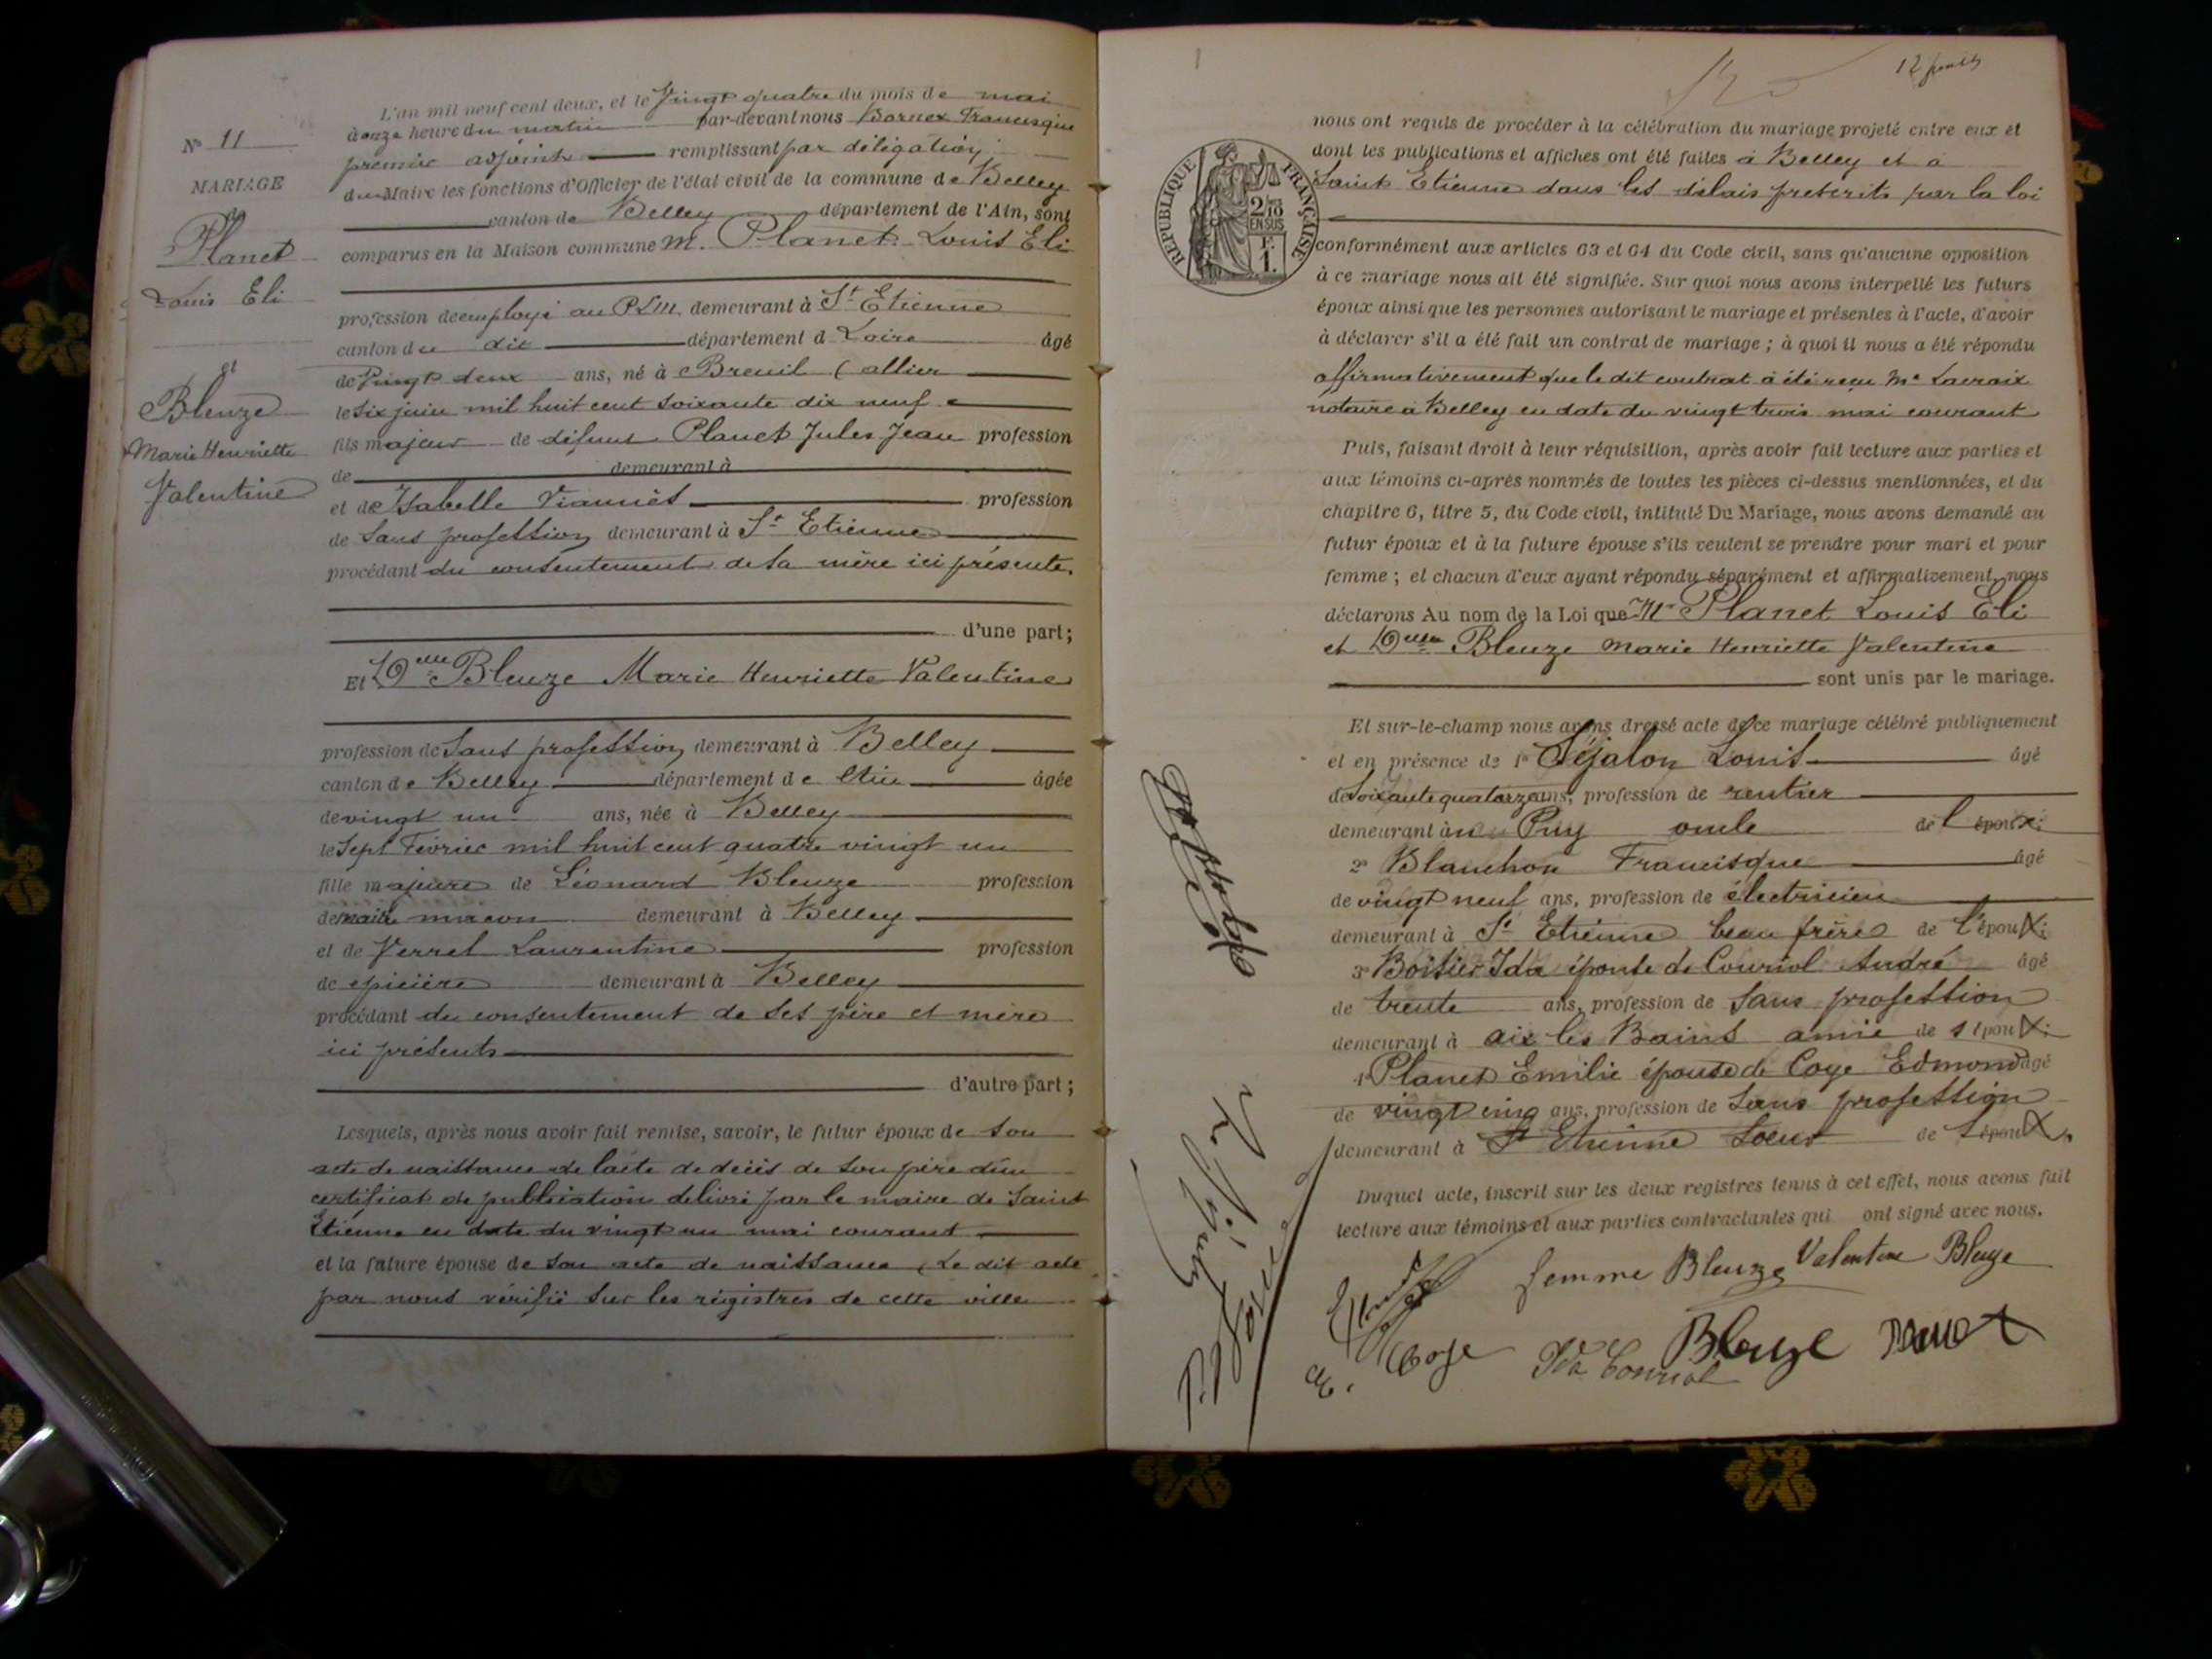 N° 11
MARIAGE
de
Planet
Louis Eli
et
Bleuze
Marie Henriette
Valentine
L'an mil neuf cent deux, et le vingt quatre du mois de mai
à onze heure du matin par-devant nous Bornex Francisque
premier adjoint remplissant par délégation
du Maire les fonctions d'Officier de l'état civil de la commune de Belley
canton de Belley département de l'Ain, sont
comparus en la Maison commune M. Planet Louis Eli
profession de employé au PLM. demeurant à St Etienne
canton du dit département d Loire âgé
de Vingt deux ans, né à Breuil (allier
le six juin mil huit cent soixante dix neuf
fils majeur de défunt Planet Jules Jean profession
de demeurant à
et de Isabelle profession
de Sans profession demeurant à St Etienne
procédant du consentement de sa mère ici présente.
d'une part;
Et Delle Bleuze Marie Henriette Valentine
profession de Sans profession demeurant à Belley
canton de Belley département de Ain âgée
de vingt un ans, née à Belley
le Sept Février mil huit cent quatre vingt un
fille majeure de Léonard Bleuze profession
de maître maçon demeurant à Belley
et de Verret Laurentine profession
de épicière demeurant à Belley
procédant du consentement de ses père et mère
ici présents
d'autre part;
Lesquels, après nous avoir fait remise, savoir, le futur époux de son
acte de naissance de l'acte de décès de son père d'un
certificat de publication délivré par le maire de Saint
Etienne en date du vingt un mai courant
et la future épouse de son acte de naissance (Le dit acte
par nous vérifié sur les registres de cette ville
12 feuillets
RÉPUBLIQUE FRANÇAISE
2/10
EN SUS
F.
1.
nous ont requis de procéder à la célébration du mariage projeté entre eux et
dont les publications et affiches ont été faites à Belley et à
Saint Etienne dans les délais prescrits par la loi
conformément aux articles 63 et 64 du Code civil, sans qu'aucune opposition
à ce mariage nous ait été signifiée. Sur quoi nous avons interpellé les futurs
époux ainsi que les personnes autorisant le mariage et présentes à l'acte, d'avoir
à déclarer s'il a été fait un contrat de mariage; à quoi il nous a été répondu
affirmativement que le dit contrat a été reçu Me Lacroix
notaire à Belley en date du vingt trois mai courant
Puis, faisant droit à leur réquisition, après avoir fait lecture aux parties et
aux témoins ci-après nommés de toutes les pièces ci-dessus mentionnées, et du
chapitre 6, titre 5, du Code civil, intitulé Du Mariage, nous avons demandé au
futur époux et à la future épouse s'ils veulent se prendre pour mari et pour
femme; et chacun d'eux ayant répondu séparément et affirmativement, nous
déclarons Au nom de la Loi que Mr Planet Louis Eli
et Delle Bleuze Marie Henriette Valentine
sont unis par le mariage.
Et sur-le-champ nous avons dressé acte de ce mariage célébré publiquement
et en présence de 1° Séjalon Louis âgé
de Soixante quatorze ans, profession de rentier
demeurant au Puy oncle de l'époux;
2° Blanchon Francisque âgé
de vingt neuf ans, profession de électricien
demeurant à St Etienne beau frère de l'époux;
3° Boisier Ida épouse de Couriol André âgé
de trente ans, profession de Sans profession
demeurant à aix les Bains amie de l époux;
4° Planet Emilie épouse de Coye Edmond âgé
de vingt cinq ans, profession de Sans profession
demeurant à St Etienne Soeur de l époux,
Duquel acte, inscrit sur les deux registres tenus à cet effet, nous avons fait
lecture aux témoins et aux parties contractantes qui ont signé avec nous.
femme Bleuze Valentine Bleuze
E. Coye Ida Couriol Bleuze Planet